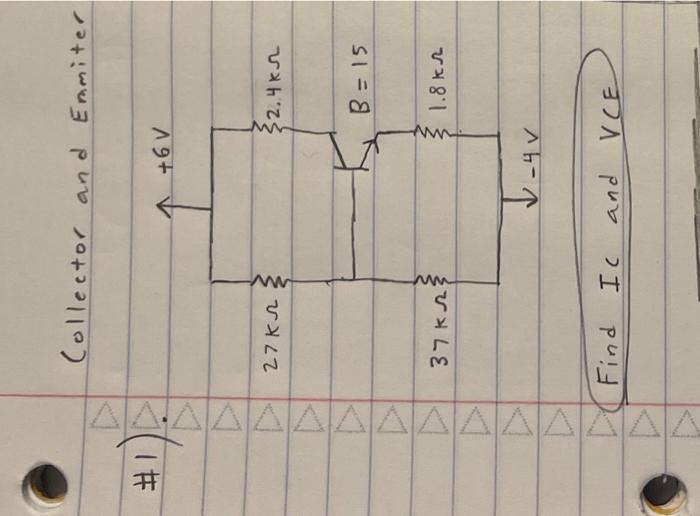 Collector and Emmiter
#1)
+6V
27kΩ
2.4kΩ
B=15
37kΩ
1.8kΩ
-4V
Find Ic and VCE